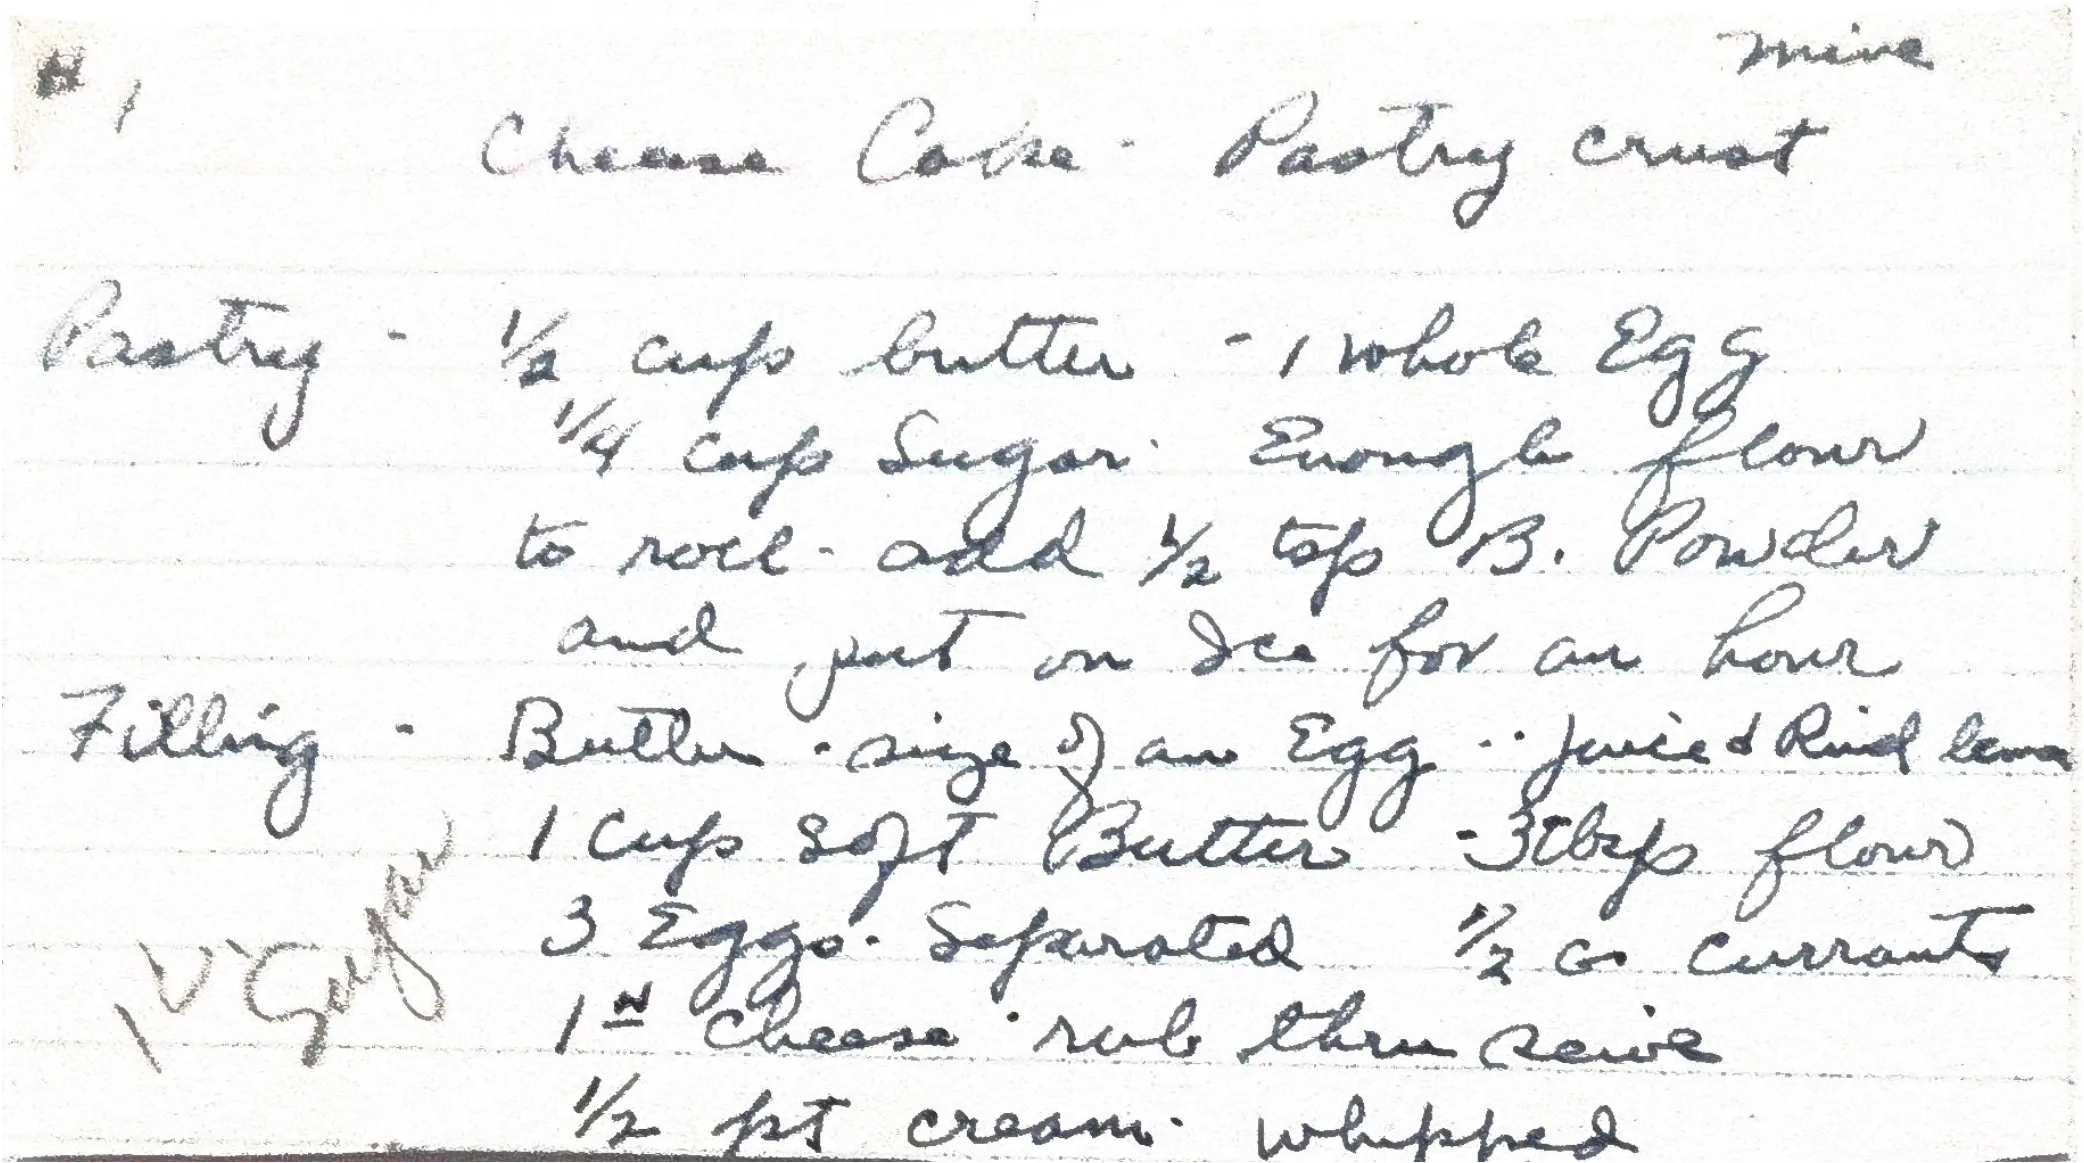 #1
mine
Cheese Cake - Pastry crust
Pastry - 1/2 cup butter - 1 whole Egg
1/4 cup Sugar. Enough flour
to roll - add 1/2 tsp B. Powder
and put on Ice for an hour
Filling - Butter - size of an Egg - juice & Rind lemo
1 Cup Soft Butter - 3 tbsps flour
3 Eggs. Separated 1/2 c. currants
1 # cheese - rub thru seive
1/2 pt cream. whipped
1 c Sugar